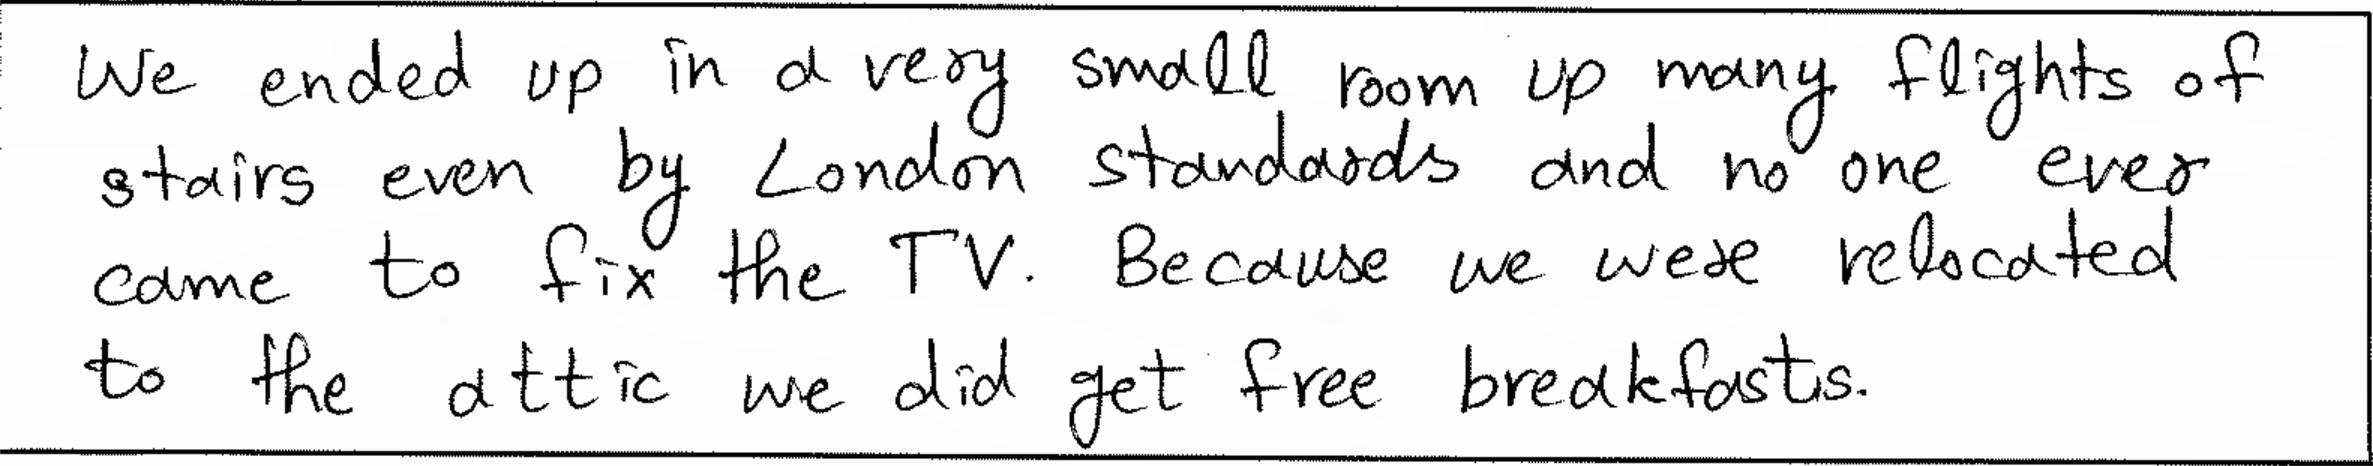 We ended up in a very small room up many flights of
stairs even by London standards and no one ever
came to fix the TV. Because we were relocated
to the attic we did get free breakfasts.